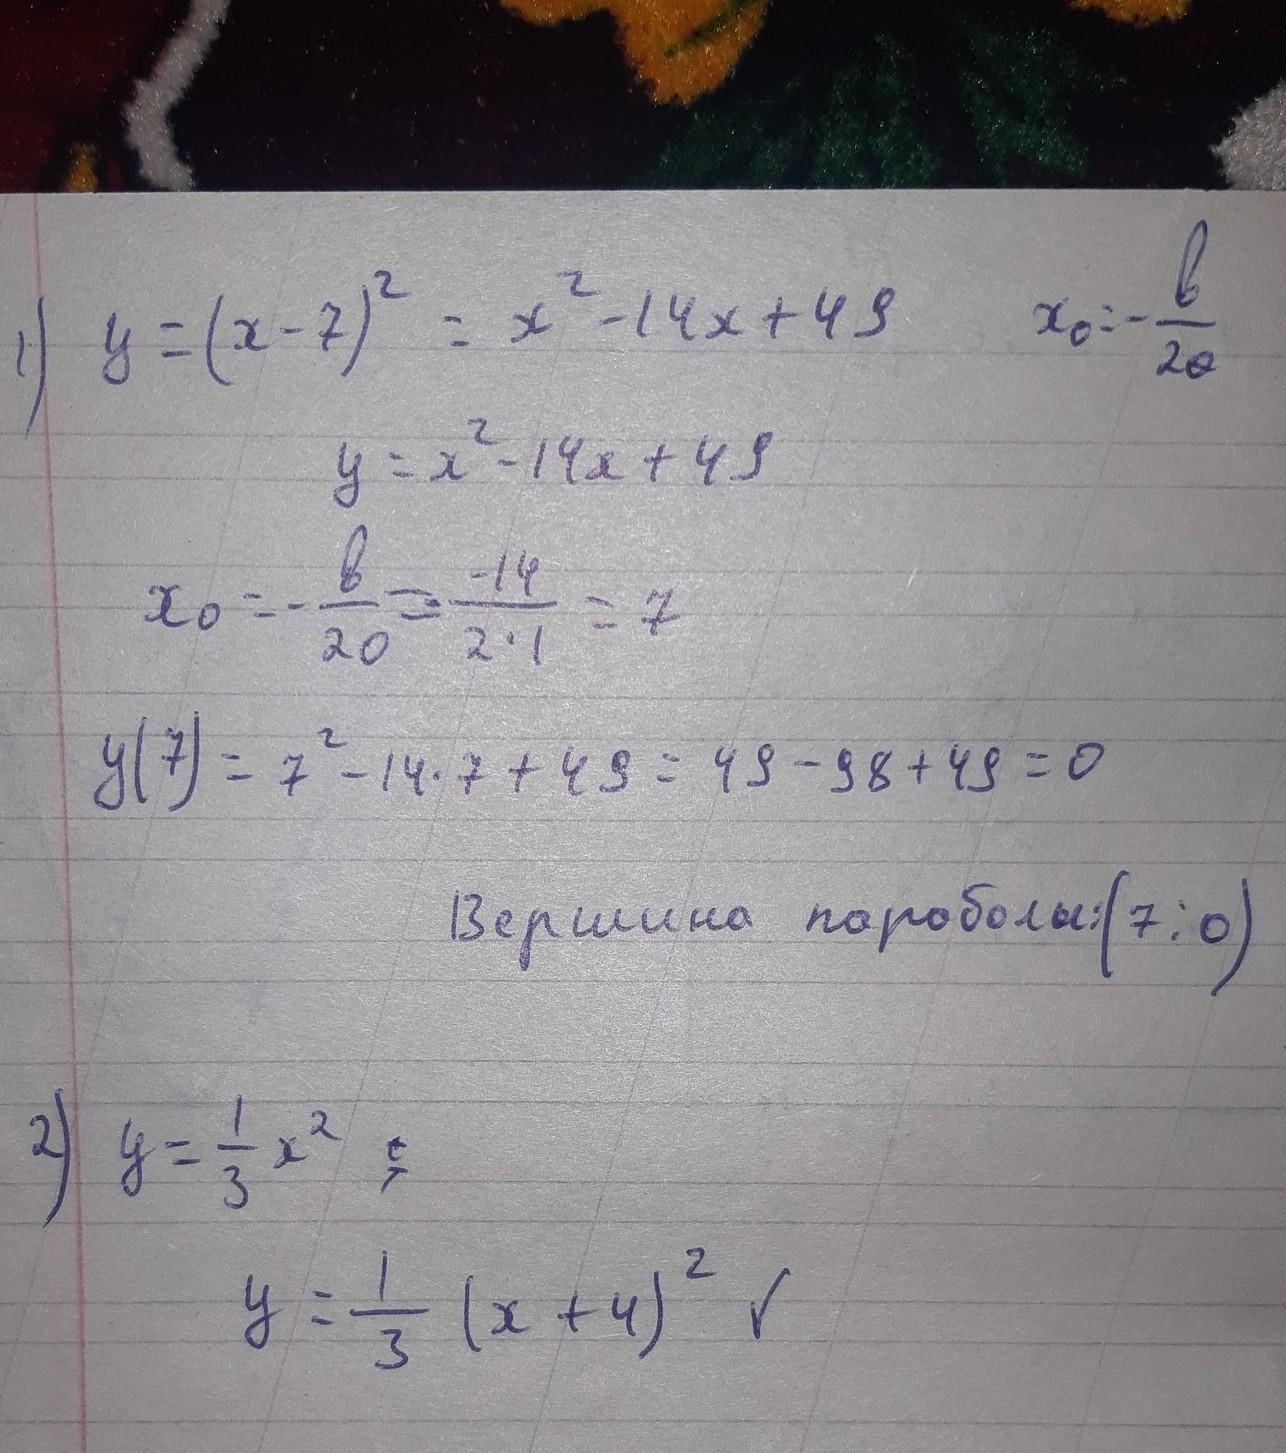 1) y = (x - 7)² = x² - 14x + 49 x₀ = - в/2a
y = x² - 14x + 49
x₀ = - в/2a = -14/2·1 = 7
y(7) = 7² - 14·7 + 49 = 49 - 98 + 49 = 0
Вершина параболы: (7; 0)
2) y = 1/3 x² ;
y = 1/3 (x + 4)² ✓